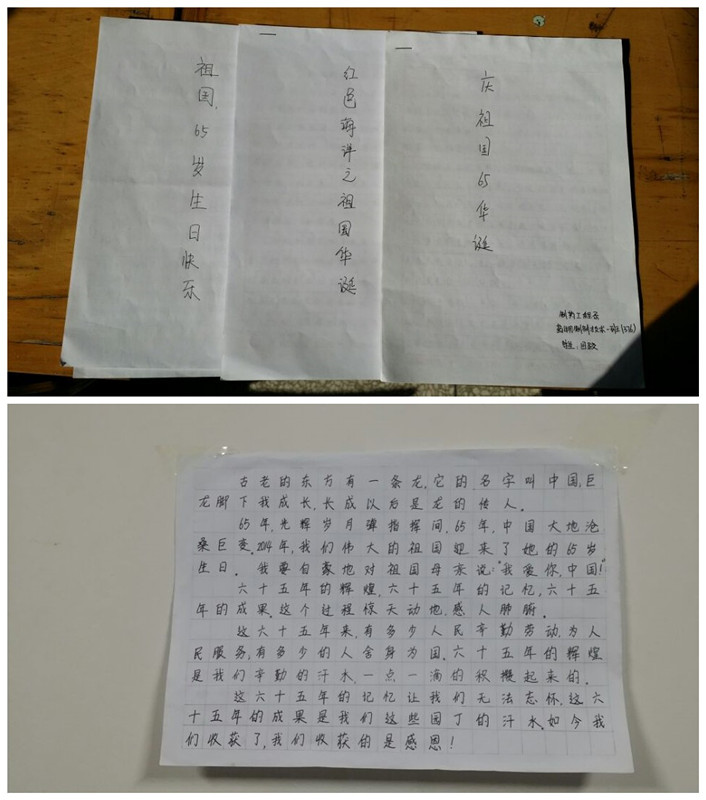 祖国,65岁生日快乐
红色蒋洋之祖国华诞
庆祖国65华诞
制药工程系
古老的东方有一条龙,它的名字叫中国,巨
龙脚下我成长,长成以后是龙的传人。
65年,光辉岁月弹指挥间,65年,中国大地沧
桑巨变。2014年,我们伟大的祖国迎来了她的65岁
生日。我要自豪地对祖国母亲说:"我爱你,中国!"
六十五年的辉煌,六十五年的记忆,六十五
年的成果。这个过程惊天动地,感人肺腑。
这六十五年来,有多少人民辛勤劳动,为人
民服务,有多少的人舍身为国。六十五年的辉煌
是我们辛勤的汗水,一点一滴的积攒起来的。
这六十五年的记忆让我们无法忘怀,这六
十五年的成果是我们这些园丁的汗水。如今我
们收获了,我们收获的是感恩!